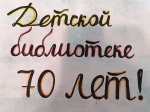 Детской
библиотеке
70 лет!